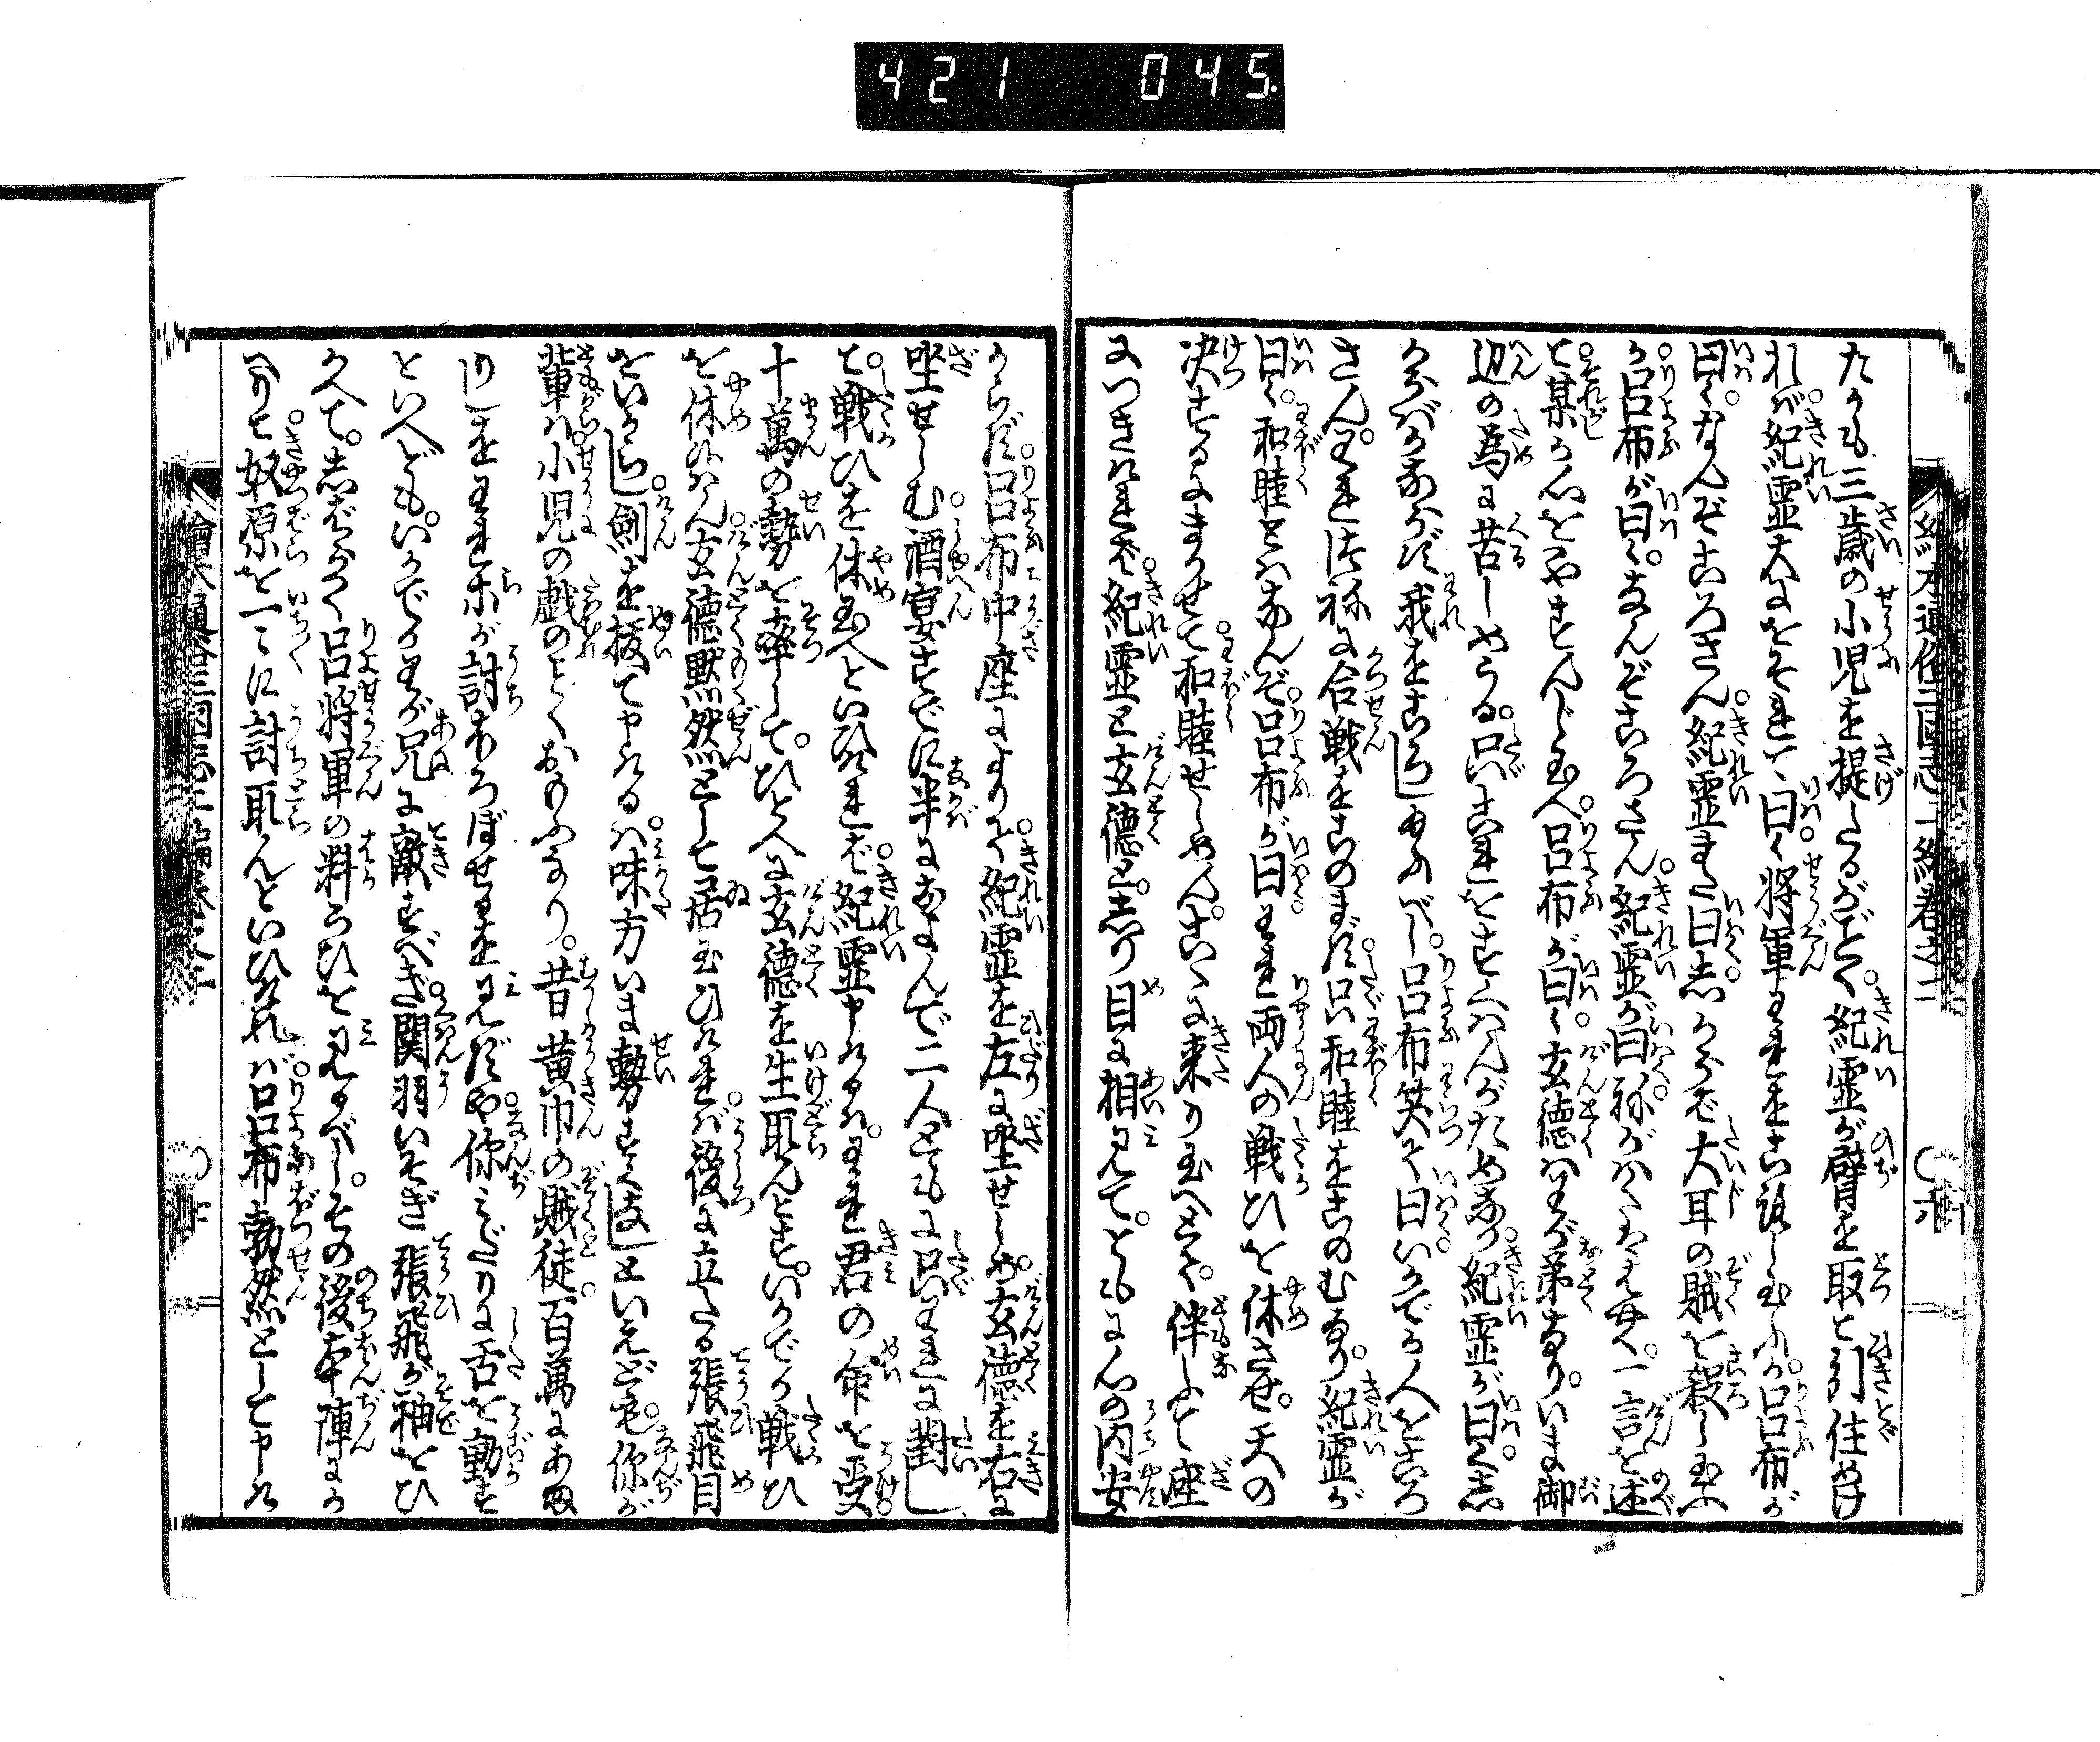 421 045.
絵本通俗三国志二編巻之二
たかも三歳の小児を提たるがごとく紀霊が臂を取と引住めけ
れば紀霊大にをそれて曰く将軍われをころし玉ふか呂布が
曰くなんぞころさん紀霊また曰しからば大耳の賊を殺し玉ふ
か呂布が曰くなんぞころさん紀霊が曰祢がはくは一言を述
て某が心をやすんじ玉へ呂布が曰く玄徳はわが弟なりいま御
辺の為に苦しめらる只これをすくはんがためなり紀霊が曰く志
からばかならず我をころし玉ふべし呂布笑て曰いかでか人をころ
さんわれ深く合戦をこのまず只和睦をこのむなり紀霊が
曰く和睦とはなんぞ呂布が曰われ両人の戦ひを休させ天の
決するにまかせて和睦せしめんこゝに来り玉へとて伴ふて座
につきければ紀霊と玄徳と志り目に相みてともに心の内安
からず呂布中座にありて紀霊を左に坐せしめ玄徳を右に
坐せしむ酒宴すでに半におよんで二人ともに只われに対し
て戦ひを休玉へといひければ紀霊申けるはわれ君の命を受
十萬の勢を率してひとへに玄徳を生取んとすいかでか戦ひ
を休けんや玄徳黙然として居玉ひければ後に立たる張飛目
をいからし剣を抜て申けるは味方いま勢すくなしといえども你が
輩は小児の戯のごとくおもふなり昔黄巾の賊徒百萬にあま
りしをわれらが討ほろぼせるをみずや你みだりに舌を動す
といへどもいかでかわが兄に敵すべき関羽いそぎ張飛が袖をひ
かへて志ばらく呂将軍の料らひをみるべしその後本陣にか
へりて奴原を一〻に討取んといひければ呂布勃然として申け